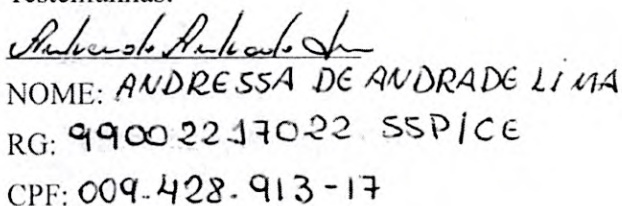 Testemunhas:
NOME: ANDRESSA DE ANDRADE LIMA
RG: 99002217022 SSP/CE
CPF: 009.428.913-17